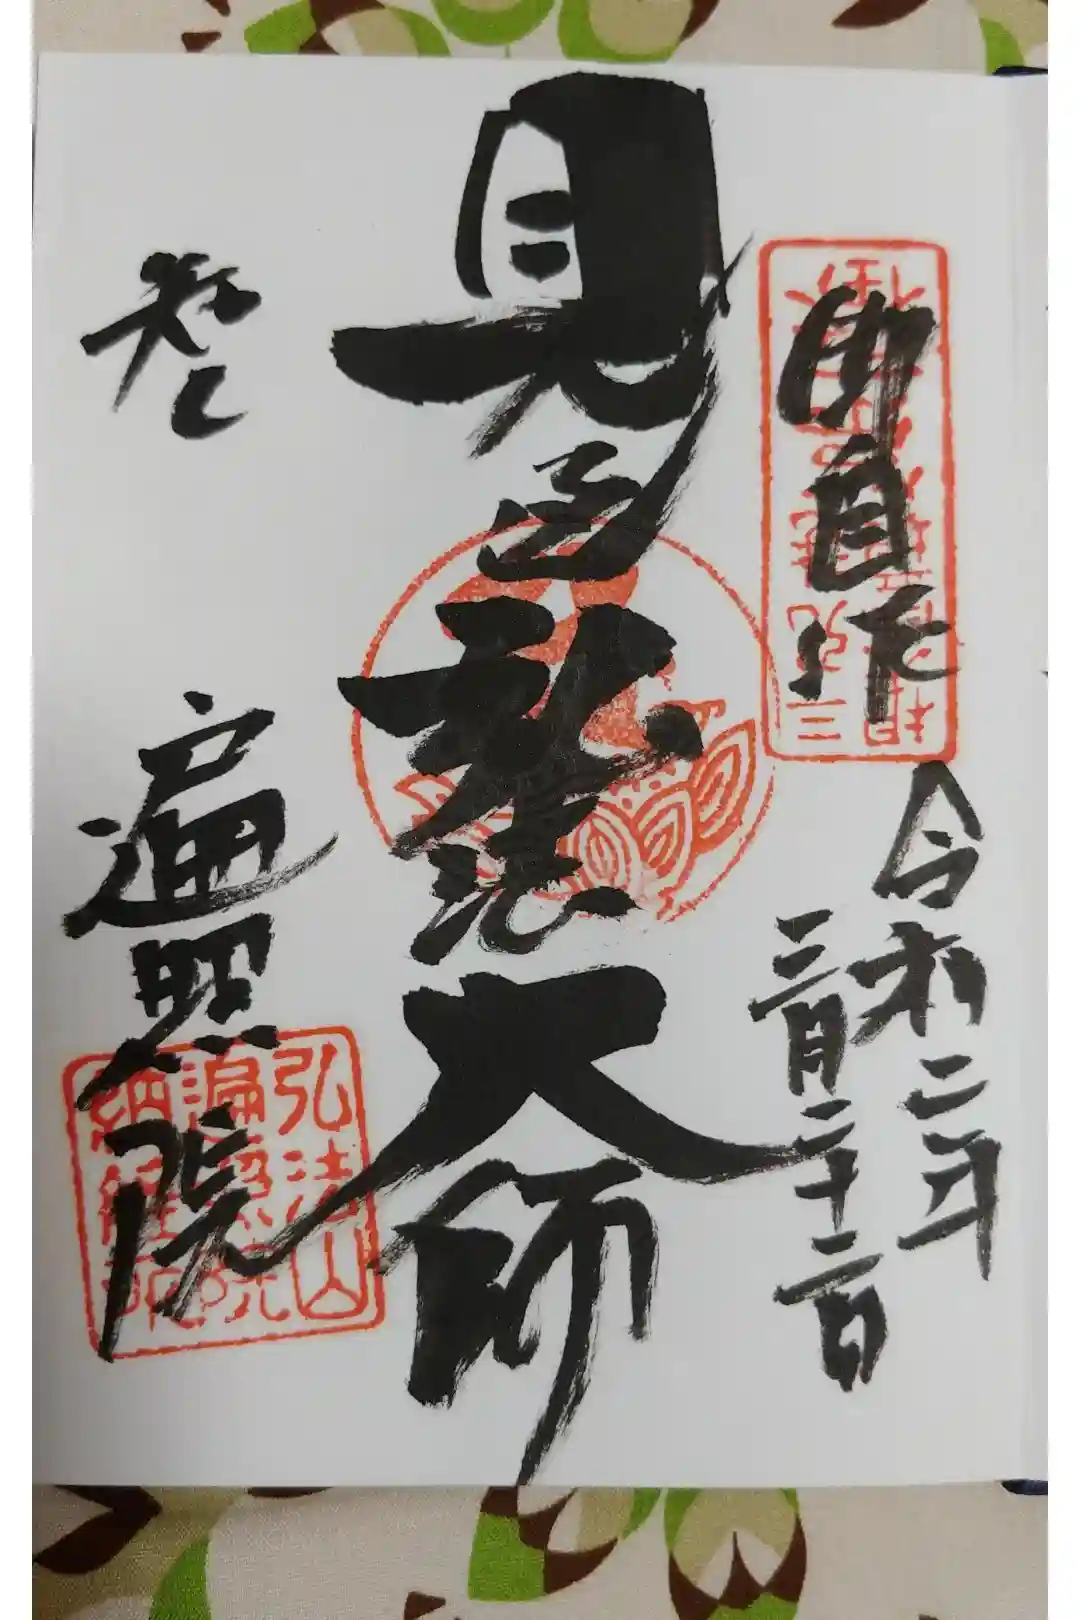 御自作
令和二年
三月二十二日
見返弘法大師
遍照院
弘法山
遍照院
納経印